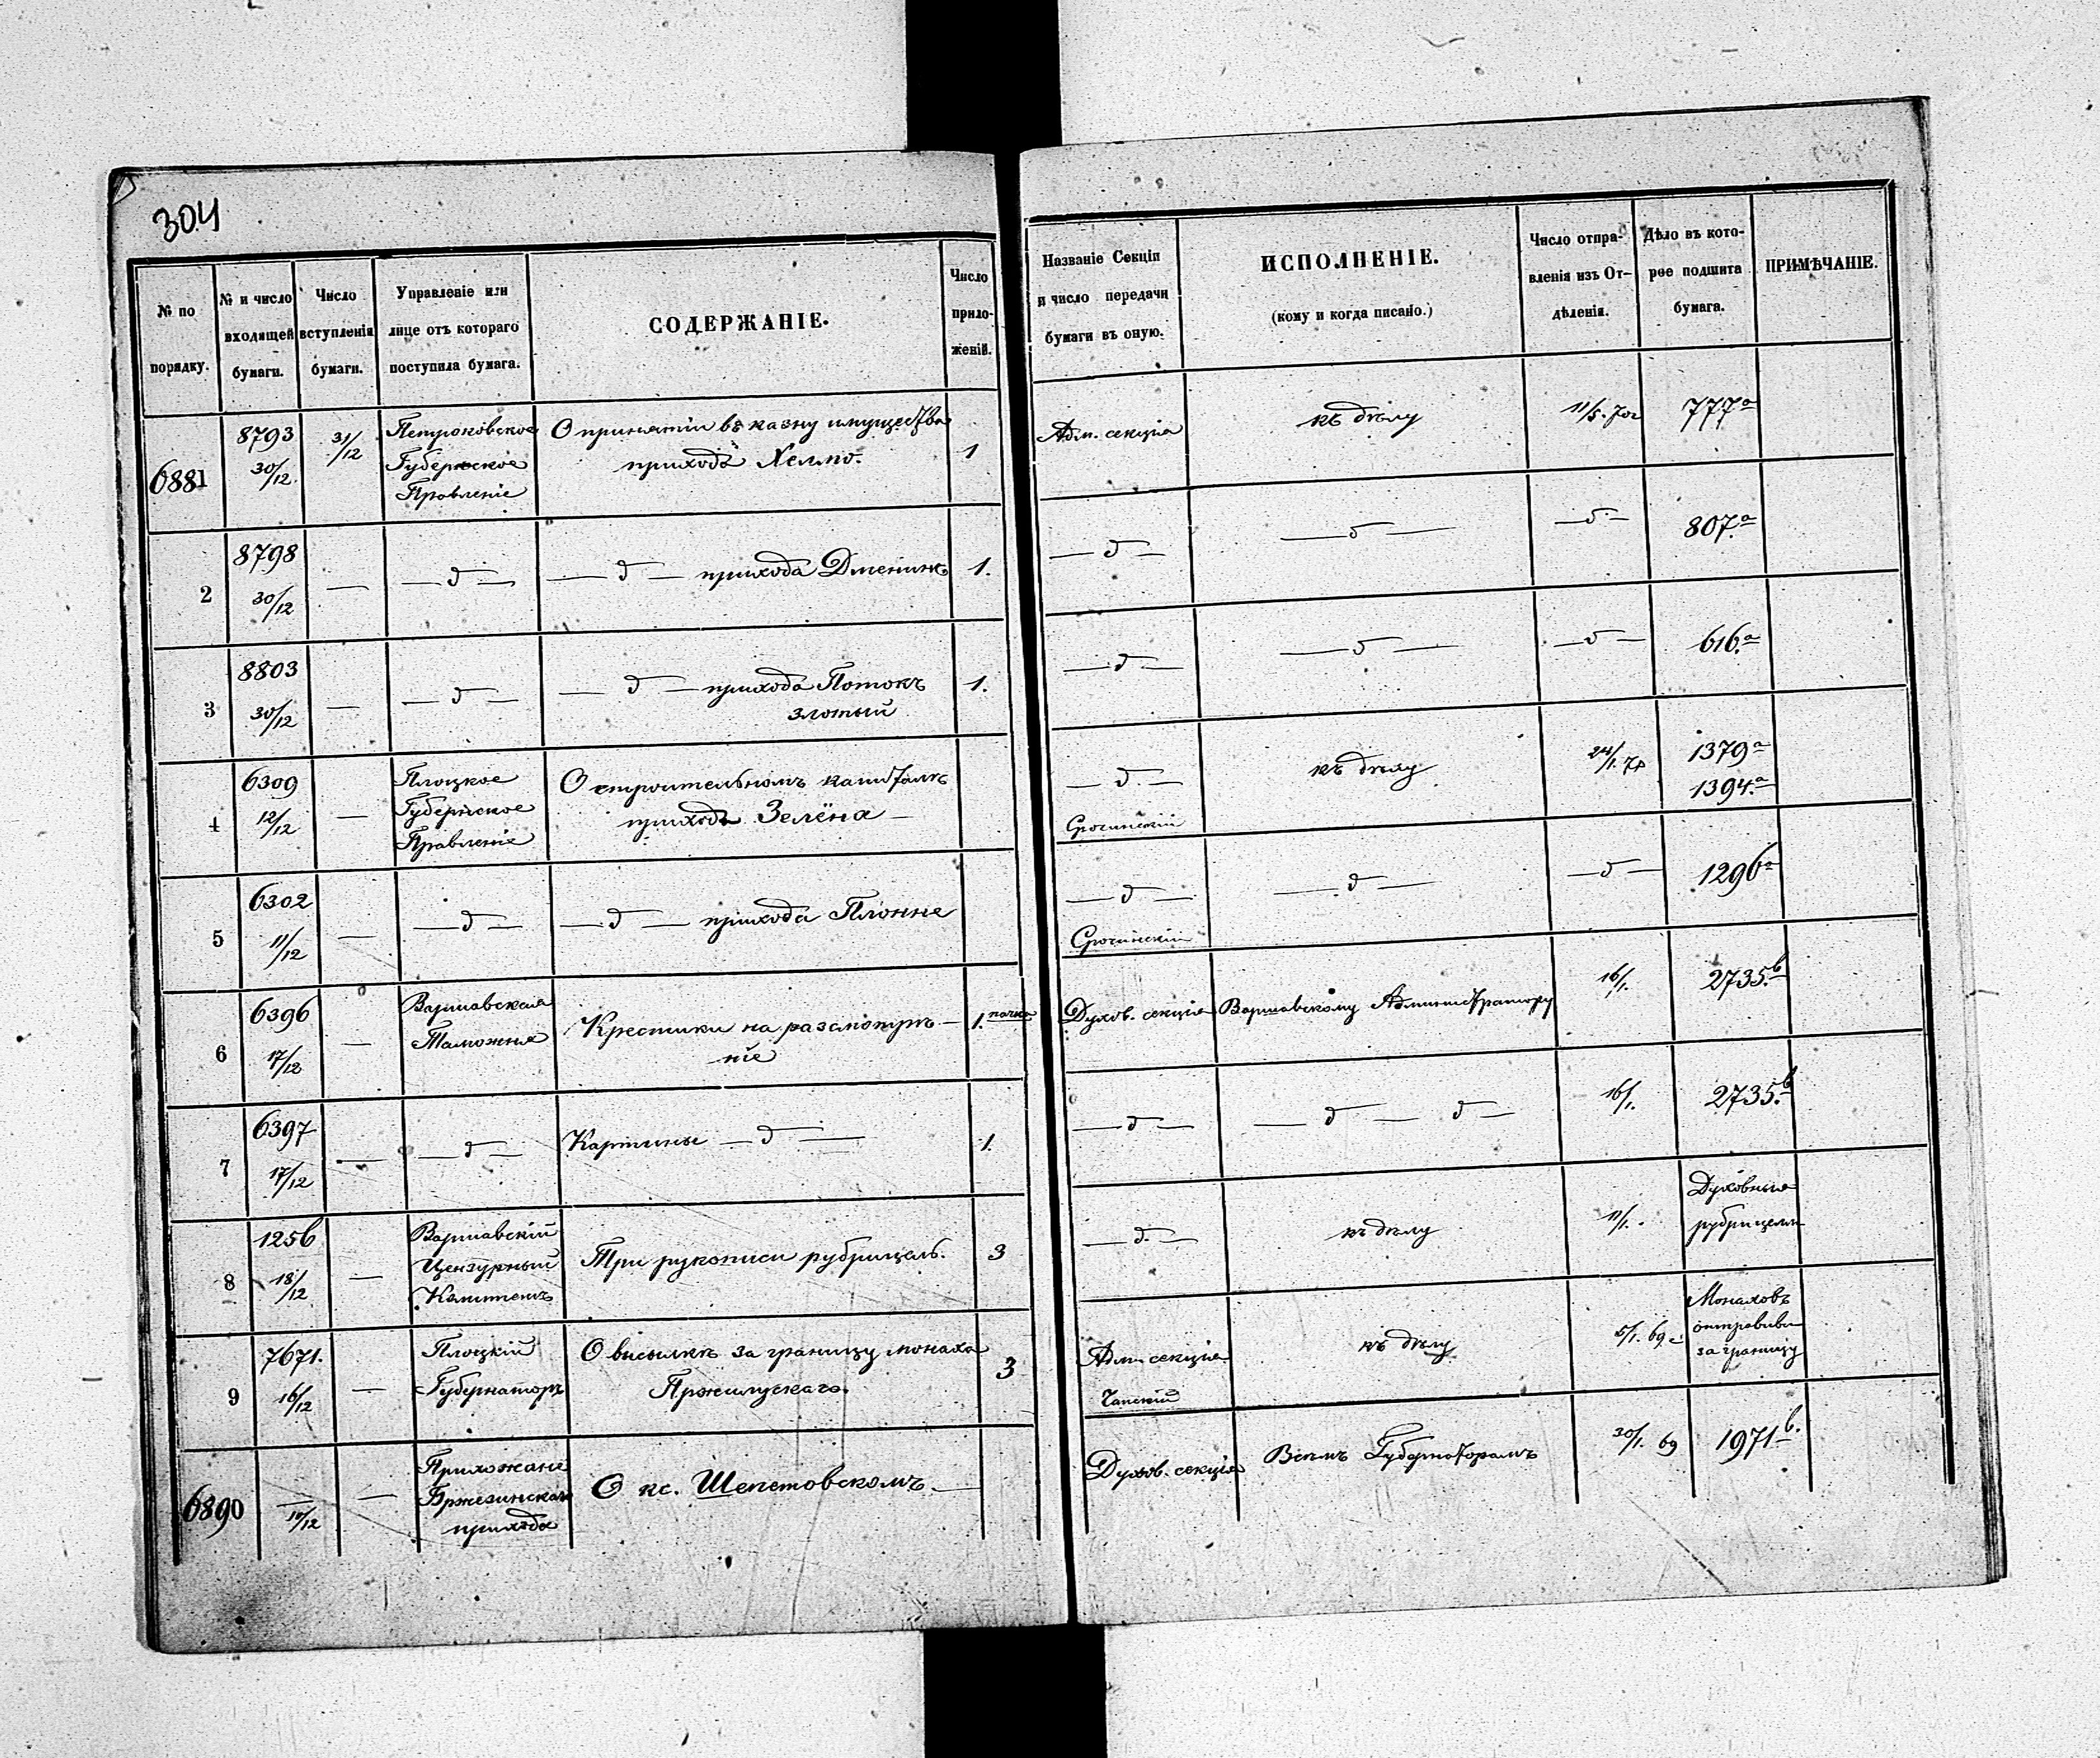 304
№ по порядку.
№ и число входящей бумаги.
Число вступленія бумаги.
Управленіе или лице отъ котораго поступила бумага.
СОДЕРЖАНІЕ.
Число приложеній.
Названіе Секціи и число передачи бумаги въ оную.
ИСПОЛНЕНІЕ.
(кому и когда писано.)
Число отпра-
вленія изъ От-
дѣленія.
Дѣло въ кото-
рое подшита
бумага.
ПРИМѢЧАНІЕ.
6881
8793
30/12
31/12
Петроковское
Губернское
Правленіе
О принятіи въ казну имущества
прихода Хелмо.
1
Адм. секція
къ дѣлу
11/5. 70г
777а
2
8798
30/12
—
— д —
— д — прихода Дменинъ
1.
— д —
— д —
— д —
807.а
3
8803
30/12
—
— д —
— д — прихода Потокъ
злотый
1.
— д —
— д —
— д —
616.а
4
6309
12/12
—
Плоцкое
Губернское
Правленіе
О строительномъ капиталѣ
прихода Зелёна —
— д —
Срочинскій
къ дѣлу
24/1. 70
1379а
1394.а
5
6302
11/12
—
— д —
— д — прихода Плонне
— д —
Срочинскій
— д —
— д —
1296а
6
6396
17/12
—
Варшавская
Таможня
Крестики на разсмотрѣ-
ніе
1. пачка
Духов. секція
Варшавскому Администратору
16/1.
2735.в
7
6397
17/12
—
— д —
Картины — д —
1.
— д —
— д — д —
16/1.
2735.в
8
1256
18/12
—
Варшавскій
Цензурный
Комитетъ
Три рукописи рубрицель.
3
— д —
къ дѣлу
11/1.
Духовныя
рубрицели
9
7671.
16/12
—
Плоцкій
Губернаторъ
О высылкѣ за границу монаха
Пржилускаго.
3
Адм. секція
Чапскій
къ дѣлу
5/1. 69 г
Монаховъ
за границу
6890
—
—
Прихожане
Бржезинскаго
прихода
О кс. Шепетовскомъ —
Духов. секція
Всѣмъ Губернаторамъ
30/1. 69
1971 в.